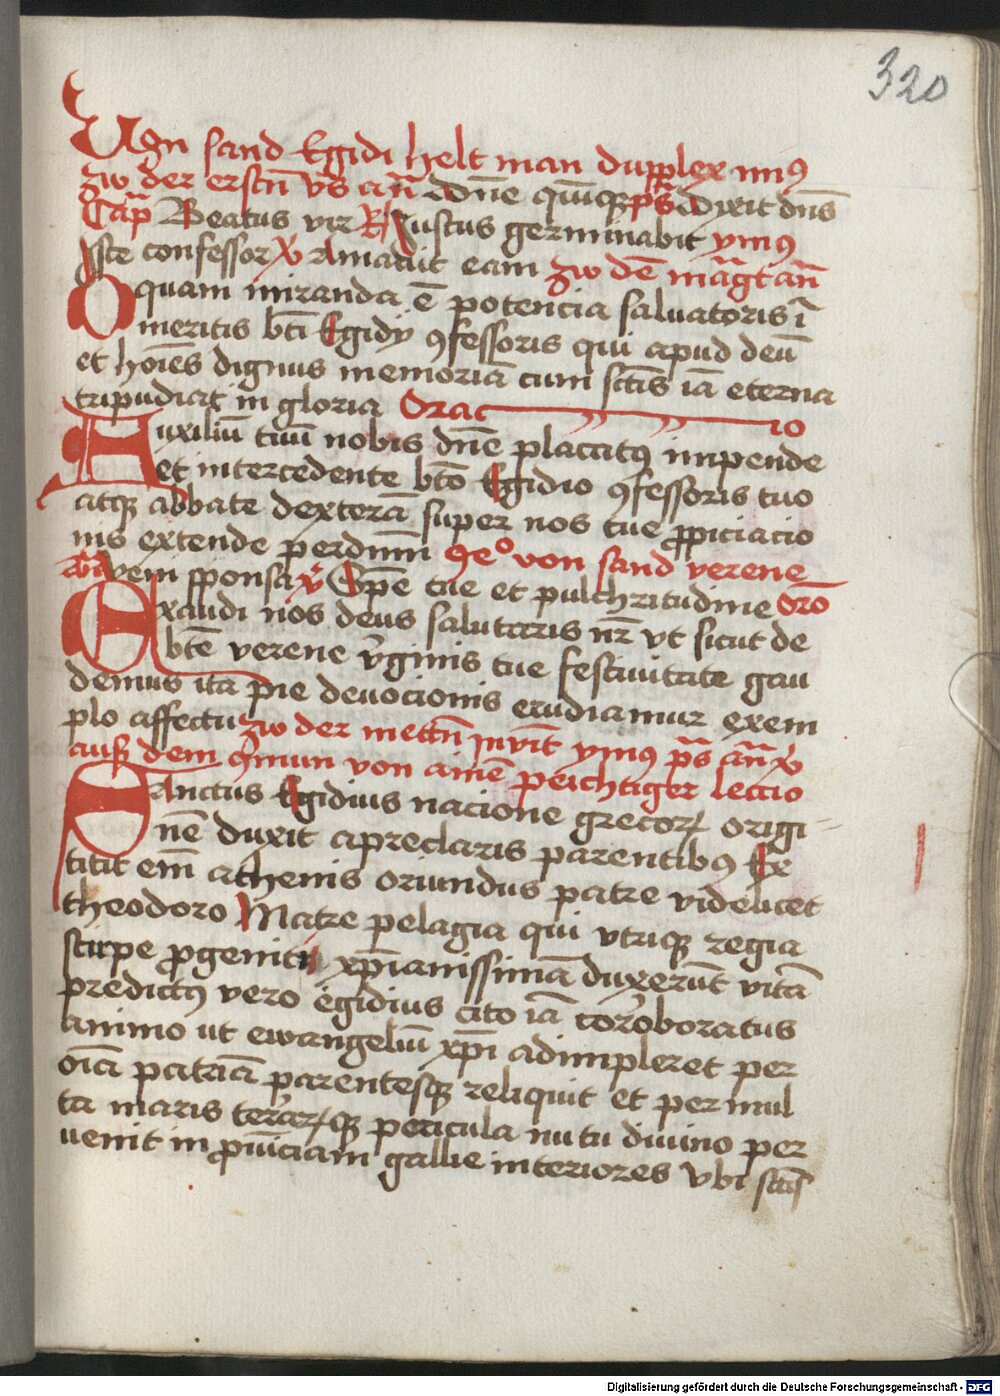 320
Von sand Egidi helt man dupplex mi9
zw der erstñ vs añ Dñe quiqꝫ ps Dyxit dñs
Cap̃ Beatus vir R Justus germinabit ym9
Iste confessor v̊ Amauit eam zw dē mãgt añ
O quam miranda ē potencia saluatoris ĩ
meritis bti Egidÿ 9fessoris qui apud deũ
et hoīes dignus memoriã cum sctīs iã eterna
tripudiat in gloria Orac io
Auxiliũ tuũ nobis dñe placat9 impende
et intercedente bto Egidio 9fessoris tuo
atqꝫ abbate dexterã super nos tue ꝓpiciacio
nis extende per dñm 9eo von sand verene
añ veni sponsa v̊ Spē tue et pulchritudine Oro
Exaudi nos deus salutaris nr̃ vt sicut de
btē verene v̓ginis tue festiuitate gau
demus ita pie deuocionis erudiamur exem
plo affectu zw der mettñ Inuit ym9 ps añ v̊
auß dem 9mun von ainē peichtiger leccio
Sanctus Egidius nacione grecoꝝ origi
nē duxit a preclaris parentib9 Ex
titit em̄ athenis oriundus patre videlicet
theodoro Matre pelagia qui vtriqꝫ regia
stirpe ꝓgeniti xp̄ianissimã duxerũt vitã
predict9 vero egidius cito iã coroboratus
animo ut ewangeliũ xp̄i adimpleret per
oīa patriã parentesqꝫ reliquit et per mul
ta maris terraꝝqꝫ pericula nutu diuino per
uenit in ꝓuĩciam gallie interiores vbi sctīs
Digitalisierung gefördert durch die Deutsche Forschungsgemeinschaft - DFG